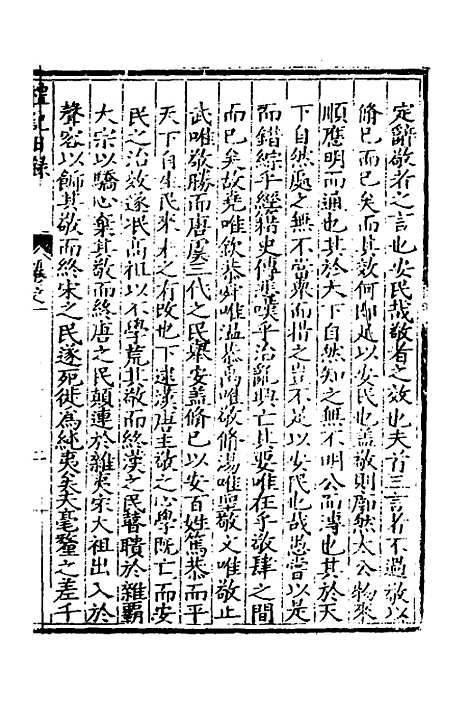 定辭敬者之言也安民哉敬者之效也夫首三言者不過敬以
脩已而已矣而其效何即足以安民也蓋敬則廓然大公物來
順應明而通也其於天下自然知之無不明公而溥也其於天
下自然處之無不當衆而措之豈不足以安民也哉愚嘗以是
而錯綜乎經籍史傳嘆乎治亂興亡其要唯在乎敬肆之間
而已矣故堯唯欽恭舜唯温恭禹唯敬脩湯唯聖敬文唯敬止
武唯敬勝而唐虞三代之民舉安蓋脩已以安百姓篤恭而平
天下自生民來才之有改也下逮漢唐主敬之心學既亡而安
民之治效遂泯高祖以不學荒其敬而終漢之民瞽聵於雜霸
大宗以驕心棄其敬而終唐之民顛連於雜夷宋大祖出入於
聲容以飾其敬而終宋之民遂死徙爲純夷矣夫毫釐之差千
禮記日録
卷之一